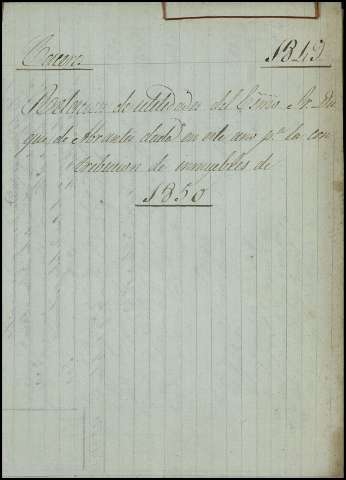 Caceres. 1849
Relacion de utilidades del Exmo Sr. Du
que de Abrantes dada en este año pa. la con
tribucion de inmuebles de
1850